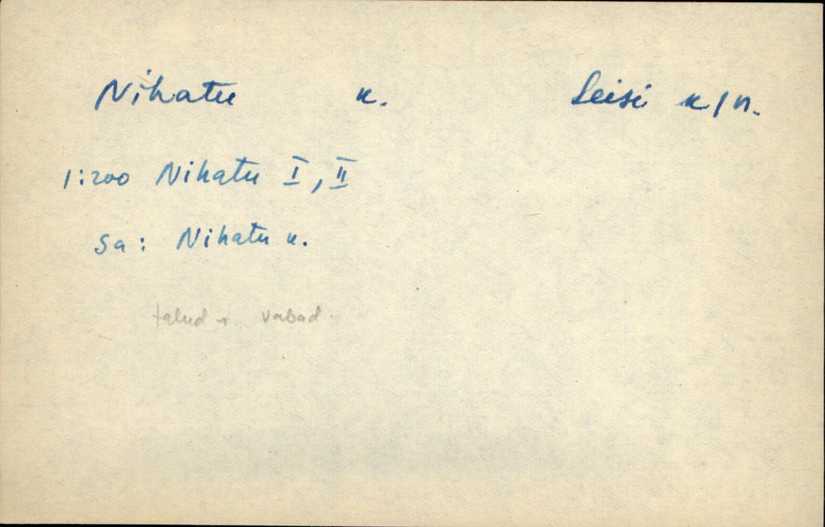 Nihatu k. Leisi k/n.
1:200 Nihatu I, II
Sa: Nihatu k.
talud + vabad.